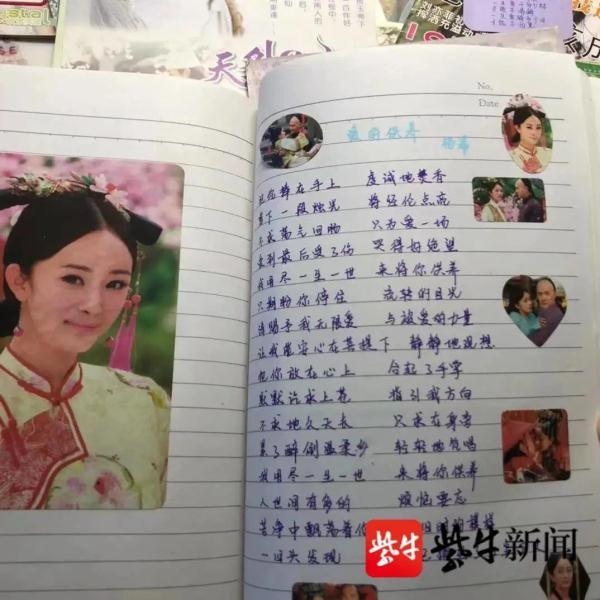 天外
No.
Date
爱的供养
杨幂
把你捧在手上 虔诚地焚香
剪下一段烛光 将经纶点亮
不求荡气回肠 只为爱一场
爱到最后受了伤 哭得好绝望
我用尽一生一世 来将你供养
只期盼你停住 流转的目光
请赐予我无限爱 与被爱的力量
让我能安心在菩提下 静静地观想
把你放在心上 合起了手掌
默默许求上苍 指引我方向
不求地久天长 只求在身旁
累了醉倒温柔乡 轻轻地气唱
我用尽一生一世 来将你供养
人世间有多的 烦恼要忘
苦净中飘荡着你 旧日的模样
一回头发现
紫牛新闻